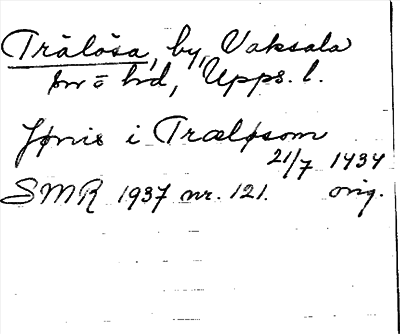 Trälösa, by, Vaksala
sn o hd, Upps. l.
Jønis i Træløsom
21/7 1434
SMR 1937 nr. 121. orig.